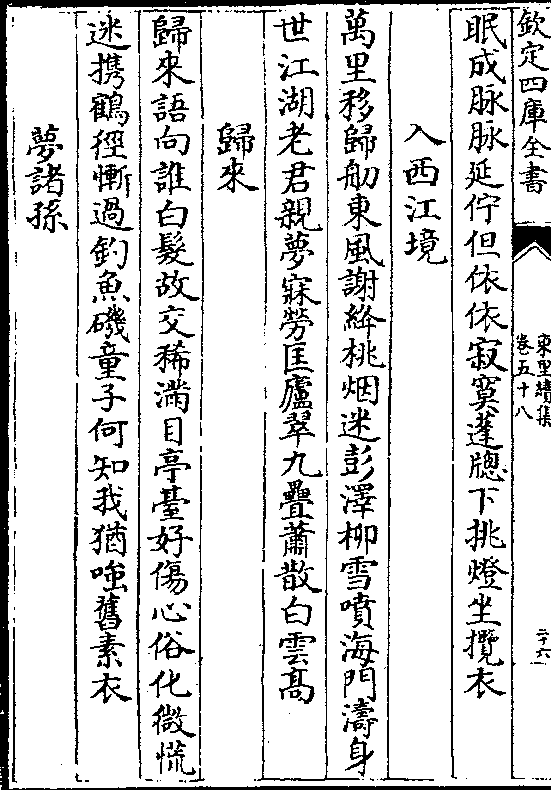 欽定四庫全書
東里續集
卷五十八
二十六
眠成脉脉延佇但依依寂寞蓬牕下挑燈坐攬衣
入西江境
萬里移歸舠東風謝絳桃烟迷彭澤柳雪噴海門濤身
世江湖老君親夢寐勞匡廬翠九疊蕭散白雲髙
歸來
歸來語向誰白髮故交稀滿目亭臺好傷心俗化微慌
迷携鶴徑慚過釣魚磯童子何知我猶嗤舊素衣
夢諸孫